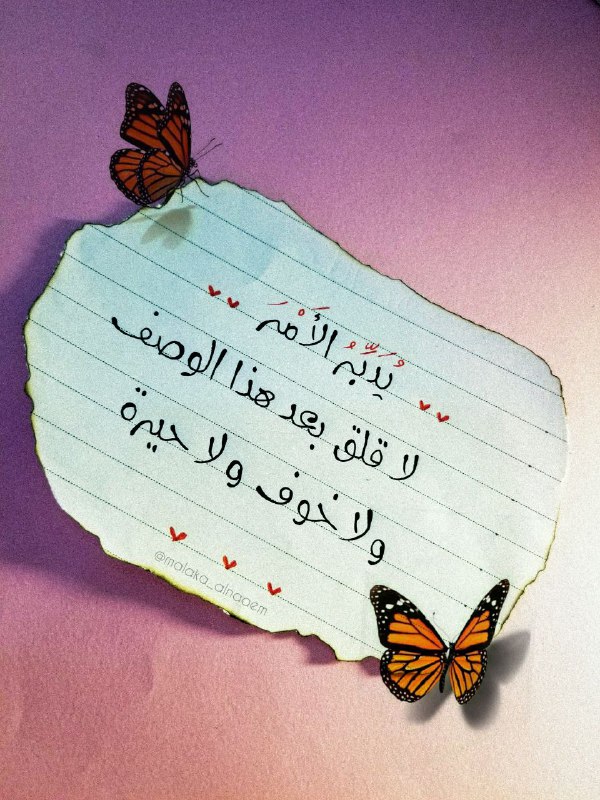 يُدَبِّرُ الأَمْرَ
لا قلق بعد هذا الوصف
ولا خوف ولا حيرة
@malaka_alnaoem